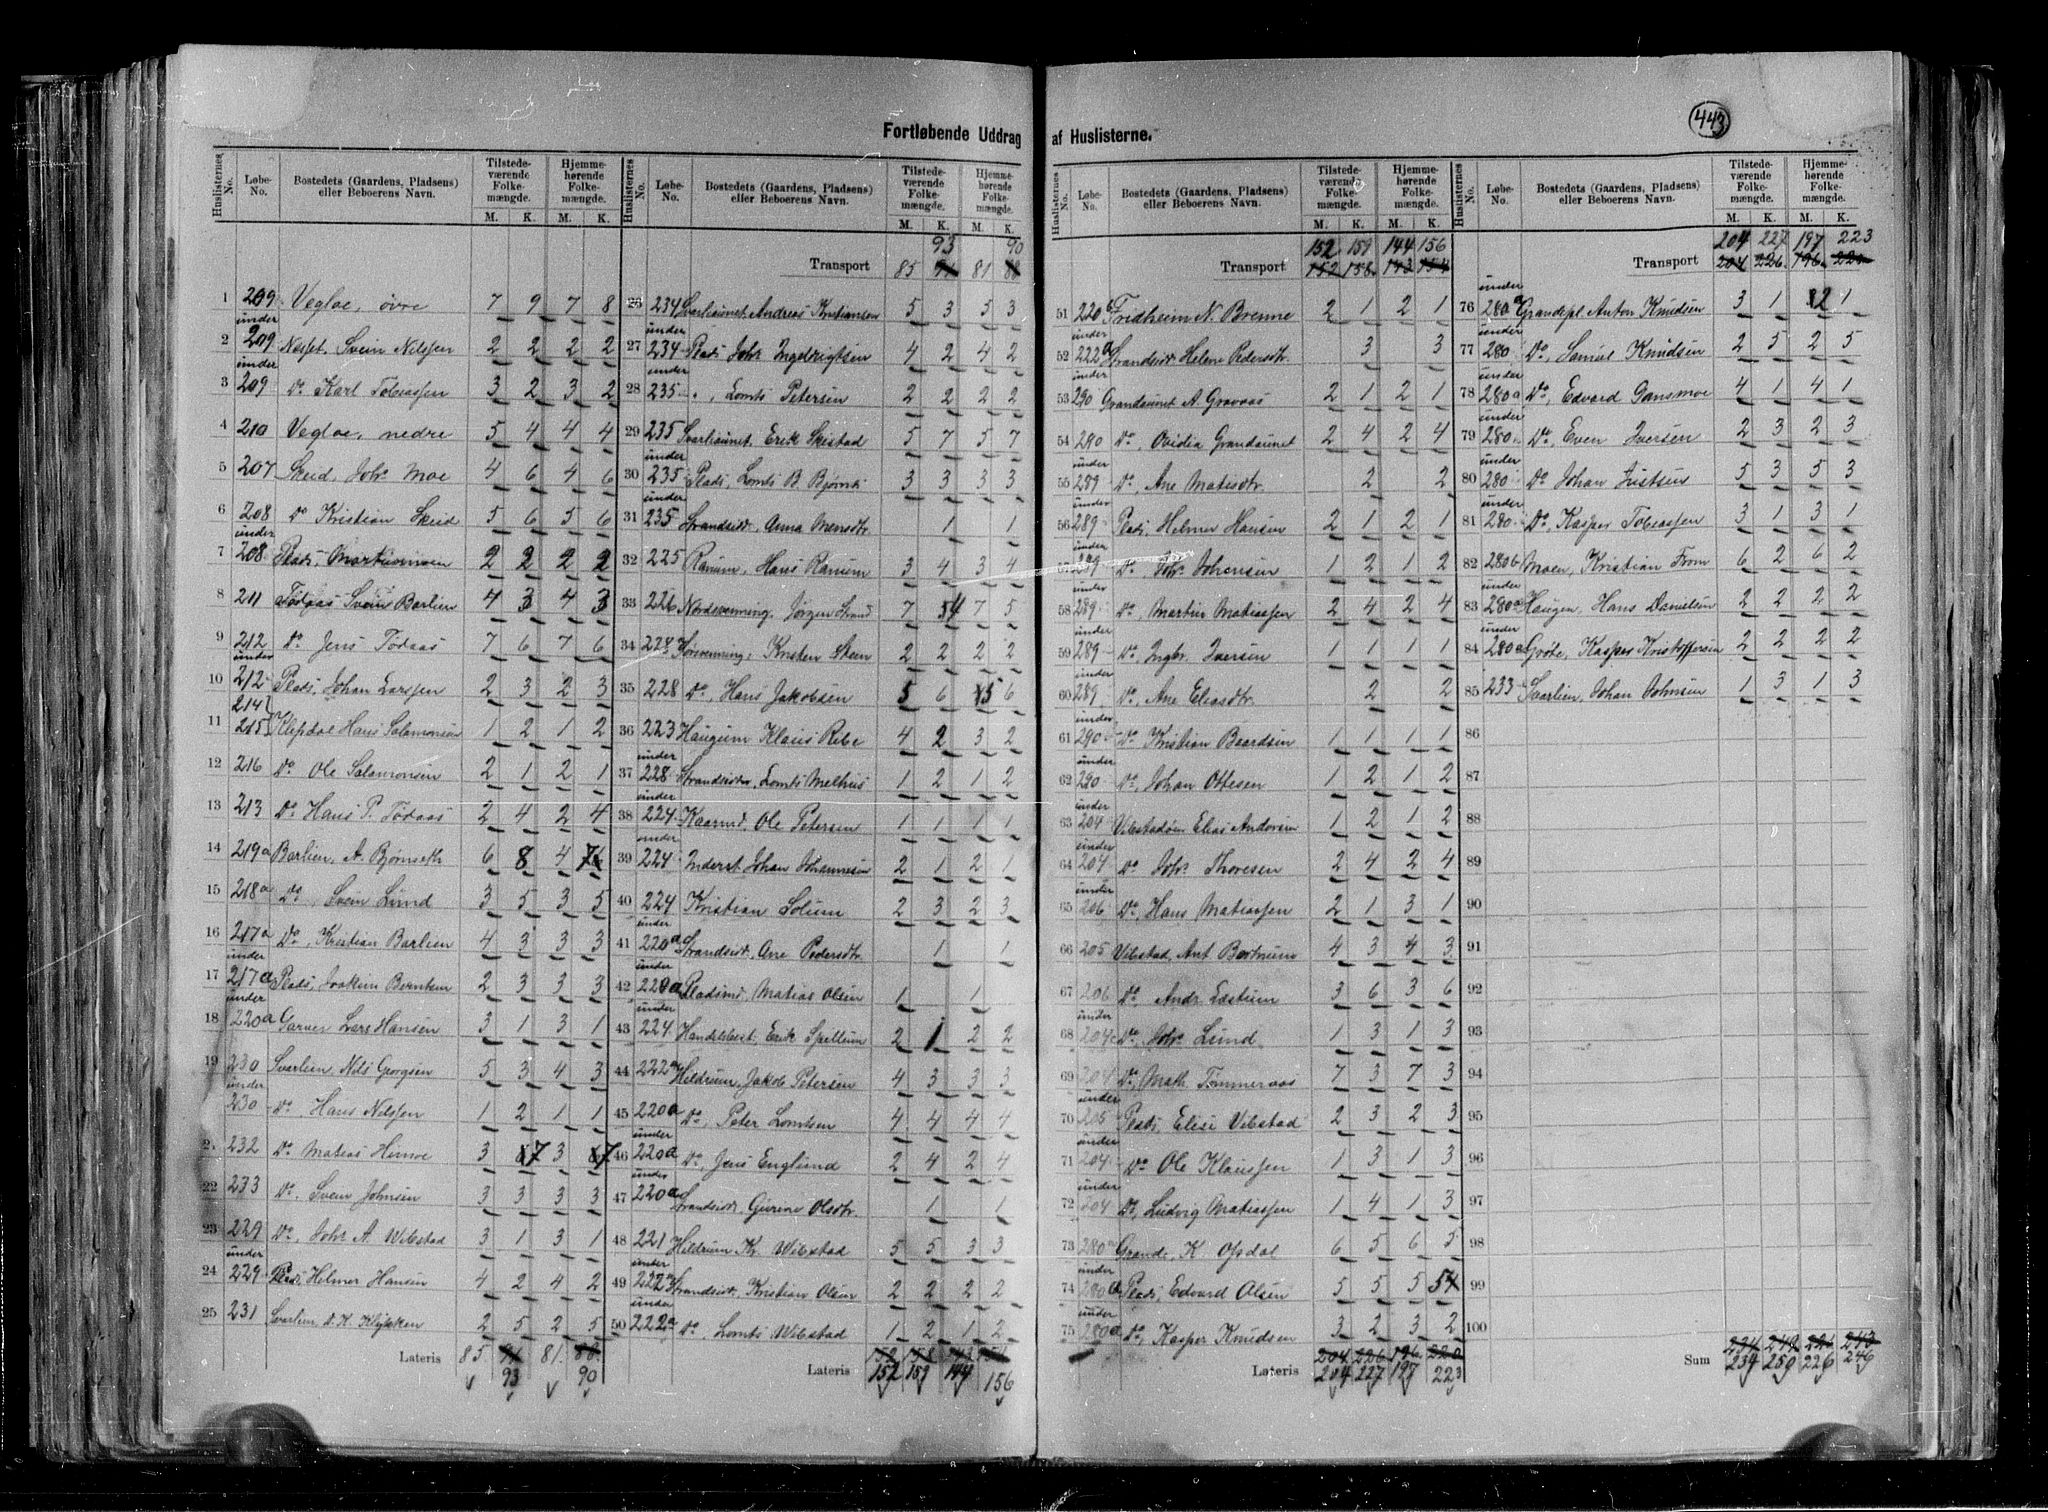 443
Fortløbende Uddrag af Huslisterne.
Huslisternes No. Løbe-No. Bostedets (Gaardens, Pladsens) eller Beboerens Navn. Tilstedeværende Folkemængde. M. K. Hjemmehørende Folkemængde. M. K.
1 209 Vegloe, øvre 7 9 7 8
2 under 209 Nesset, Svein Nilssen 2 2 2 2
3 under 209 Do Karl Tobiassen 3 2 3 2
4 210 Vegloe, nedre 5 4 4 4
5 207 Skeid, Johs Moe 4 6 4 6
6 208 Do Kristian Skeid 5 6 5 6
7 under 208 Plads, Martinsmoen 2 2 2 2
8 211 Tødaas Svein Barlien 4 3 4 3
9 212 Do Jens Tødaas 7 6 7 6
10 under 212 Plads, Johan Larssen 2 3 2 3
11 214 215 Klepdal Hans Salamonsen 1 2 1 2
12 216 Do Ole Salamonsen 2 1 2 1
13 213 Do Hans P. Tødaas 2 4 2 4
14 219a Barlien, A. Bjørnseth 6 8 4
15 218a Do, Svein Lund 3 5 3 5
16 217a Do, Kristian Barlien 4 3 3 3
17 under 217a Plads, Joakim Berntsen 2 3 3 3
18 under 220a Garver Lars Hansen 3 1 3 1
19 230 Svarlien, Nils Georgsen 5 3 4 3
under 230 Do Hans Nilssen 1 2 1 1
21 232 Do Matias Himoe 3 7 3 7
22 233 Do. Svein Johnsen 3 3 3 3
23 229 Do. Johs A. Wibstad 3 1 3 1
24 under 229 Plads Helmer Hansen 4 2 4 2
25 231 Svarlien, 2 5 2 5
Lateris 85 91 81. 88
93 90
Huslisternes No. Løbe-No. Bostedets (Gaardens, Pladsens) eller Beboerens Navn. Tilstedeværende Folkemængde. M. K. Hjemmehørende Folkemængde. M. K.
93 90
Transport 85 91 81 88
26 234 Svarliaunet Andreas Kristiansen 5 3 5 3
27 under 234 Plads Johs Ingebrigtsen 4 2 4 2
28 under 235 " , Lornts Petersen 2 2 2 2
29 235 Svarliaunet, Erik Skistad 5 7 5 7
30 under 235 Plads, Lornts B Bjørnts 3 3 3 3
31 under 235 Strandsidt, Anna Monsdtr 1 1
32 225 Ranum, Hans Ranum 3 4 3 4
33 226 Nordsvenning, Jørgen Strand 7 4 7 5
34 Horvenning, Kristen Skeen 2 2 2 2
35 228 Do, Hans Jakobsen 5 6 5 6
36 223 Haugum Klaus Ribe 4 2 3 2
37 under 228 Strandsidr, Lornts Melhus 1 2 1 2
38 under 224 Kaarmd. Ole Petersen 1 1 1 1
39 under 224 Inderst Johan Johannesen 2 1 2 1
40 224 Kristian Solum 2 3 2 3
41 under 220a Strandsidt, Ane Pedersdtr. 1 1
42 under 220a Pladsmd, Matias Olsen 1 1
43 under 224. Handelsbest. Erik Spillum 2 1 2 2
44 222a Hildrum, Jakob Petersen 4 3 3 3
45 220a Do, Peter Lorntsen 4 4 4 4
46 under 220a Do, Jens Englund 2 4 2 4
47 under 220a Strandsidt. Gurine Olsdtr. 1 1
48 221 Hildrum Kr. Wibstad 5 5 3 3
49 under 222a Strandsidr, Kristian Olsen 2 2 2 2
50 under 222a Do, Lornts Wibstad 1 2 1 2
Lateris 152 158 143 154
152 159 144 156
Huslisternes No. Løbe-No. Bostedets (Gaardens, Pladsens) eller Beboerens Navn. Tilstedeværende Folkemængde. M. K. Hjemmehørende Folkemængde. M. K.
152 159 144 156
Transport 152 158 143 154
51 220c Fridheim N. Brenne 2 1 2 1
52 under 222a Strandsidt Helen Pedersdtr. 3 3
53 under 290 Grandaunet A. Gravaas 2 1 2 1
54 290 Do, Ovidia Grandaunet 2 4 2 4
55 under 289 Do, Ane Matisdtr. 2 2
56 under 289 Plads, Helmer Hansen 2 1 2 1
57 under 289 Do, Johs Johansen 1 2 1 2
58 under 289 Do, Martin Matiassen 2 4 2 4
59 under 289 Do, Ingbr. Iversen 1 1 1 1
60 under 289 Do, Ane Eliasdtr. 2 2
61 under 290 Do Kristian Baardsen 1 1 1 1
62 under 290 Do, Johan Ottesen 1 2 1 2
63 under 204 Vibstadøen Elias Andersen 1 2 1 2
64 under 204 Do Johs Thoresen 2 4 2 4
65 under 206 Do, Hans Matiassen 2 1 3 1
66 205 Vibstad, Ant Bertnum 4 3 4 3
67 206 Do Andr. Læstum 3 6 3 6
68 under 204c Do, Johs Lund. 1 3 1 3
69 204 Do, Math. Tømmeraas 7 3 7 3
70 under 205 Plads, Elise Vibstad 2 3 2 3
71 under 204 Do Ole Klaussen 1 3 1 3
72 under 204 Do, Ludvig Matiassen 1 4 1 3
73 280a Grande, K. Opdal 6 5 6 5
74 under 280a Plads, Edvard Olsen 5 5 5
75 under 280a Do, Kasper Knudsen 3 2 3 2
Lateris 204 226 196 220
204 227 197 223
Huslisternes No. Løbe-No. Bostedets (Gaardens, Pladsens) eller Beboerens Navn. Tilstedeværende Folkemængde. M. K. Hjemmehørende Folkemængde. M. K.
204 227 197 223
Transport 204 226 196 220
76 under 280a Grandepl. Anton Knudsen 3 1 2 1
77 under 280 Do, Samuel Knudsen 2 5 2 5
78 under 280a Do, Edvard Gansmoe 4 1 4 1
79 under 280 Do, Even Iversen 2 3 2 3
80 under 280 Do Johan Justsen 5 3 5 3
81 under 280 Do, Kasper Tobiassen 3 1 3 1
82 280b Moen, Kristian From 6 2 6 2
83 under 280a Haugen, Hans Danielsen 2 2 2 2
84 under 280a Grøte, Kasper Kristoffersen 2 2 2 2
85 233 Svarlien, Johan Johnsen 1 3 1 3
86
87
88
89
90
91
92
93
94
95
96
97
98
99
100
Sum 234 249 226 243
234 250 226 246